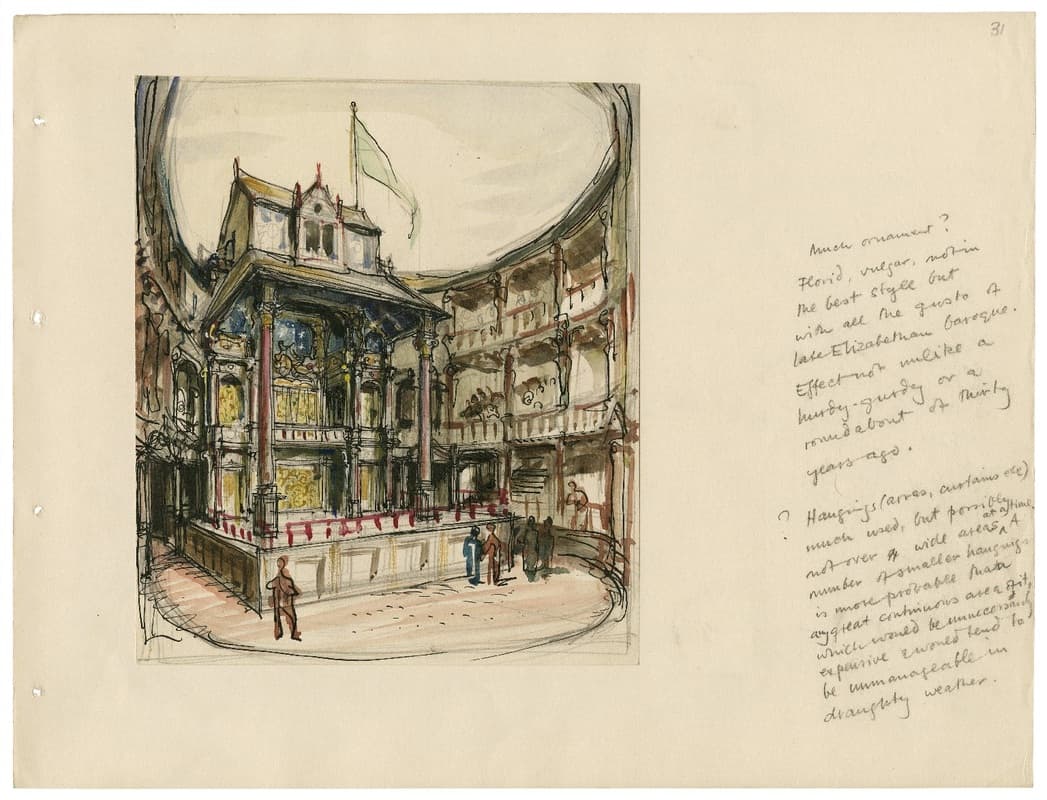 31
Much ornament?
Florid, vulgar, not in
the best style but
with all the gusto of
late Elizabethan baroque.
Effect not unlike a
hurdy-gurdy or a
roundabout of thirty
years ago.
? Hangings (arras, curtains etc)
much used, but possibly
not over wide areas at a time. A
number of smaller hangings
is more probable than
any great continuous area of it,
which would be unnecessarily
expensive & would tend to
be unmanageable in
draughty weather.